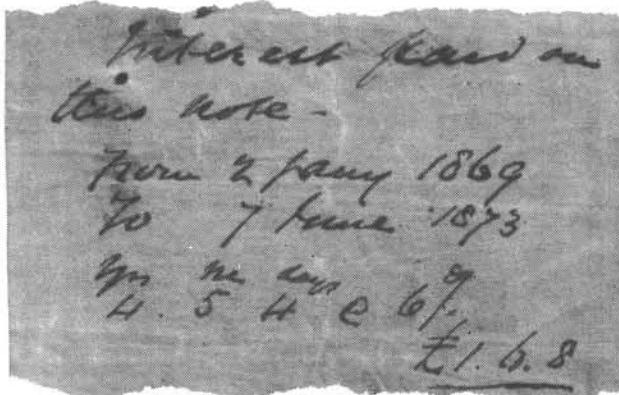 Interest paid on
this note -
From 2 Jany 1869
To 7 June 1873
yrs ms days %
4. 5 4 @ 6%
£1.6.8